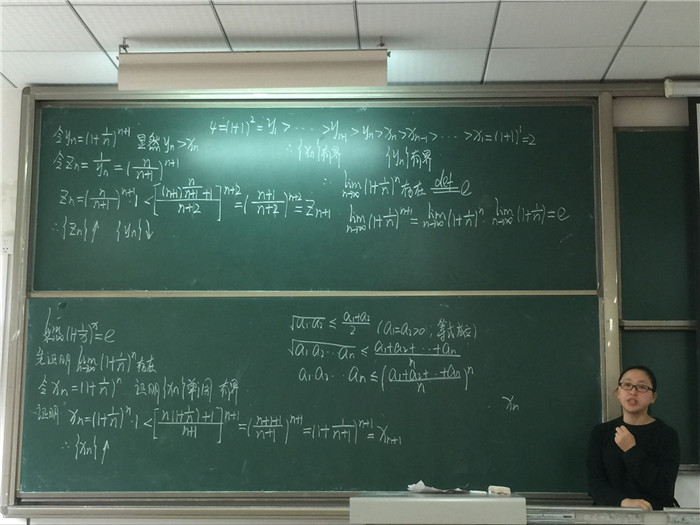 令yₙ=(1+1/n)ⁿ⁺¹ 显然yₙ>xₙ
令zₙ=1/yₙ=(n/(n+1))ⁿ⁺¹
zₙ=(n/(n+1))ⁿ⁺¹·1<[((n+1)n/(n+1)+1)/(n+2)]ⁿ⁺²=((n+1)/(n+2))ⁿ⁺²=zₙ₊₁
∴{zₙ}↑ {yₙ}↓
4=(1+1)²=y₁>⋯>yₙ₋₁>yₙ>xₙ>xₙ₋₁>⋯>x₁=(1+1)¹=2
∴{xₙ}有界 {yₙ}有界
∴lim n→∞ (1+1/n)ⁿ存在 def e
lim n→∞ (1+1/n)ⁿ⁺¹=lim n→∞ (1+1/n)ⁿ·lim n→∞ (1+1/n)=e
(1+1/x)ˣ=e
先证明lim n→∞ (1+1/n)ⁿ存在
令xₙ=(1+1/n)ⁿ 证明{xₙ}单调 有界
证明 xₙ=(1+1/n)ⁿ·1<[(n(1+1/n)+1)/(n+1)]ⁿ⁺¹=((n+1+1)/(n+1))ⁿ⁺¹=(1+1/(n+1))ⁿ⁺¹=xₙ₊₁
∴{xₙ}↑
√(a₁a₂)≤(a₁+a₂)/2 (a₁=a₂>0;等式成立)
√(a₁a₂⋯aₙ)≤(a₁+a₂+⋯+aₙ)/n
a₁a₂⋯aₙ≤((a₁+a₂+⋯+aₙ)/n)ⁿ
xₙ